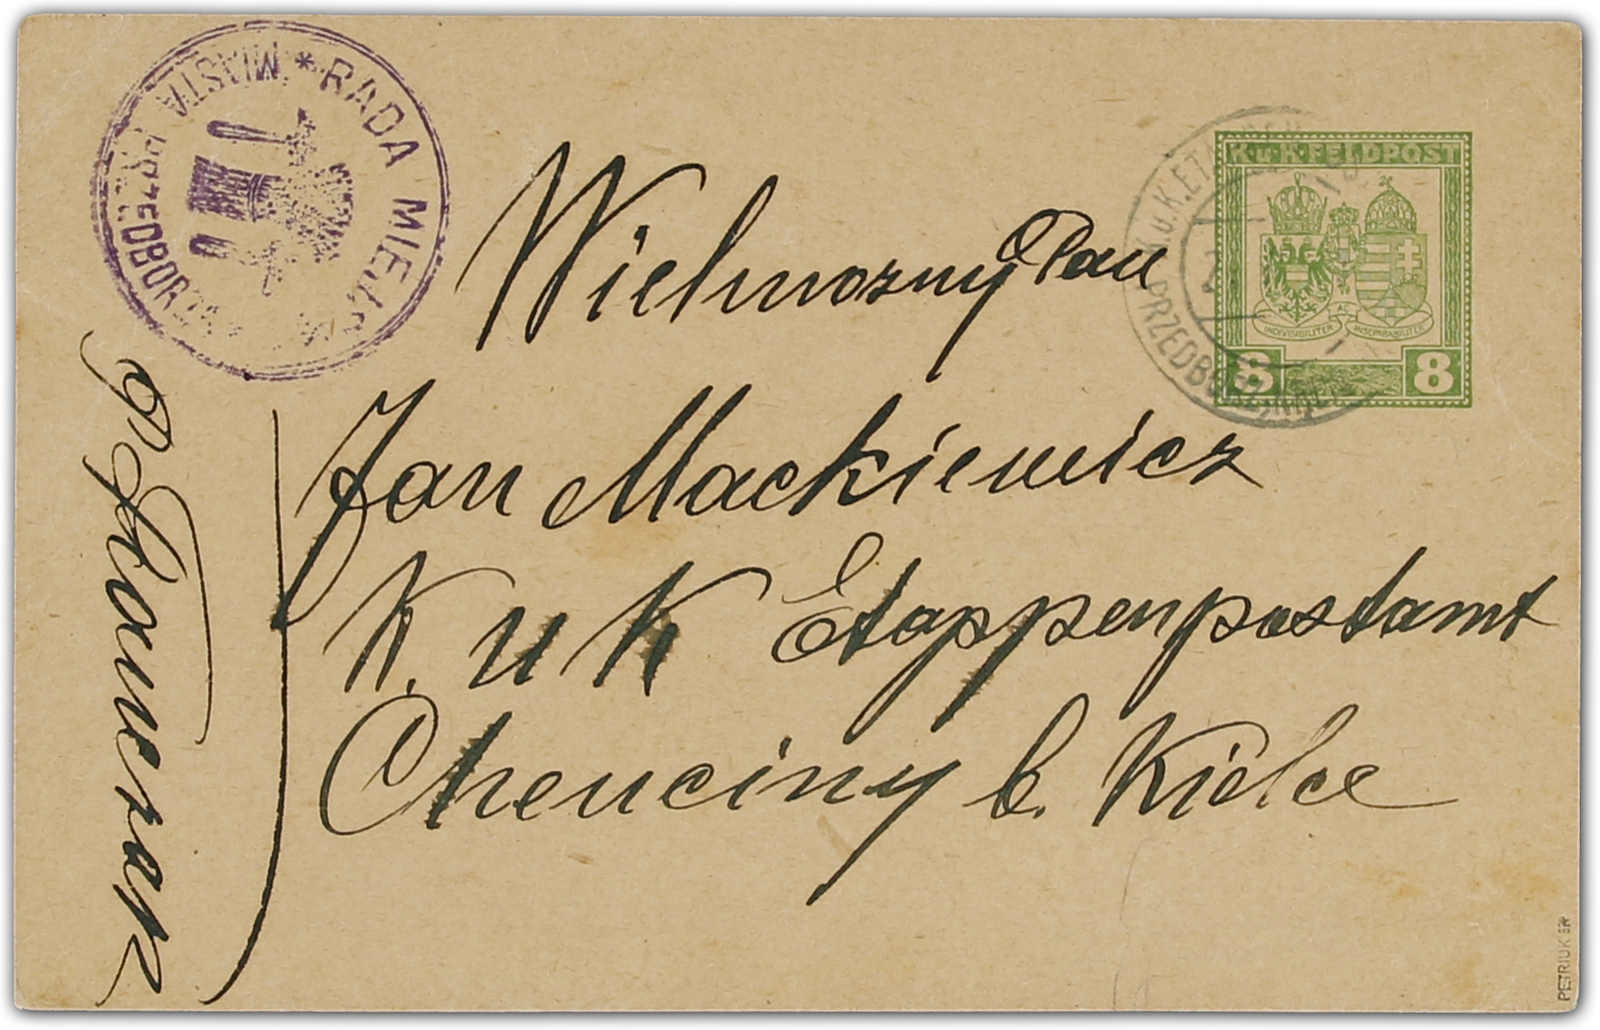 * RADA MIEJSKA
MIASTA PRZEDBORZA
K.u.K.FELDPOST
INDIVISIBILITER
INSEPARABILITER
8 8
K.u.K.ET
PRZEDBORZ
Wielmozny Pan
Jan Mackiewicz
K. u K Etappenpostamt
Chenciny b. Kielce
PETRIUK